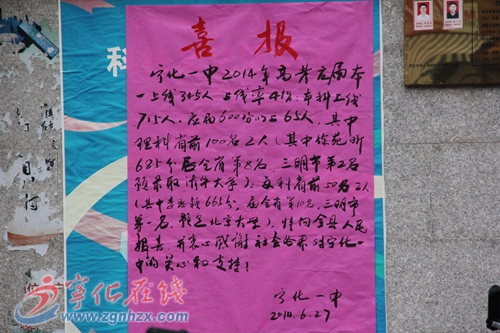 喜报
宁化一中2014年高考应届本
一上线345人上线率41%.本科上线
715人,应届600分以上65人,其中
理科省前100名2人(其中徐苑昕
685分居全省第8名,三明市第2名
预录取清华大学),文科省前50名2人
665分,居全省第10名,三明市
第一名,北京大学),特向全县人民
报喜,并衷心感谢社会各界对宁化一
中的关心和支持!
宁化一中
2014.6.27
科
宁化在线
www.zgnhzx.com